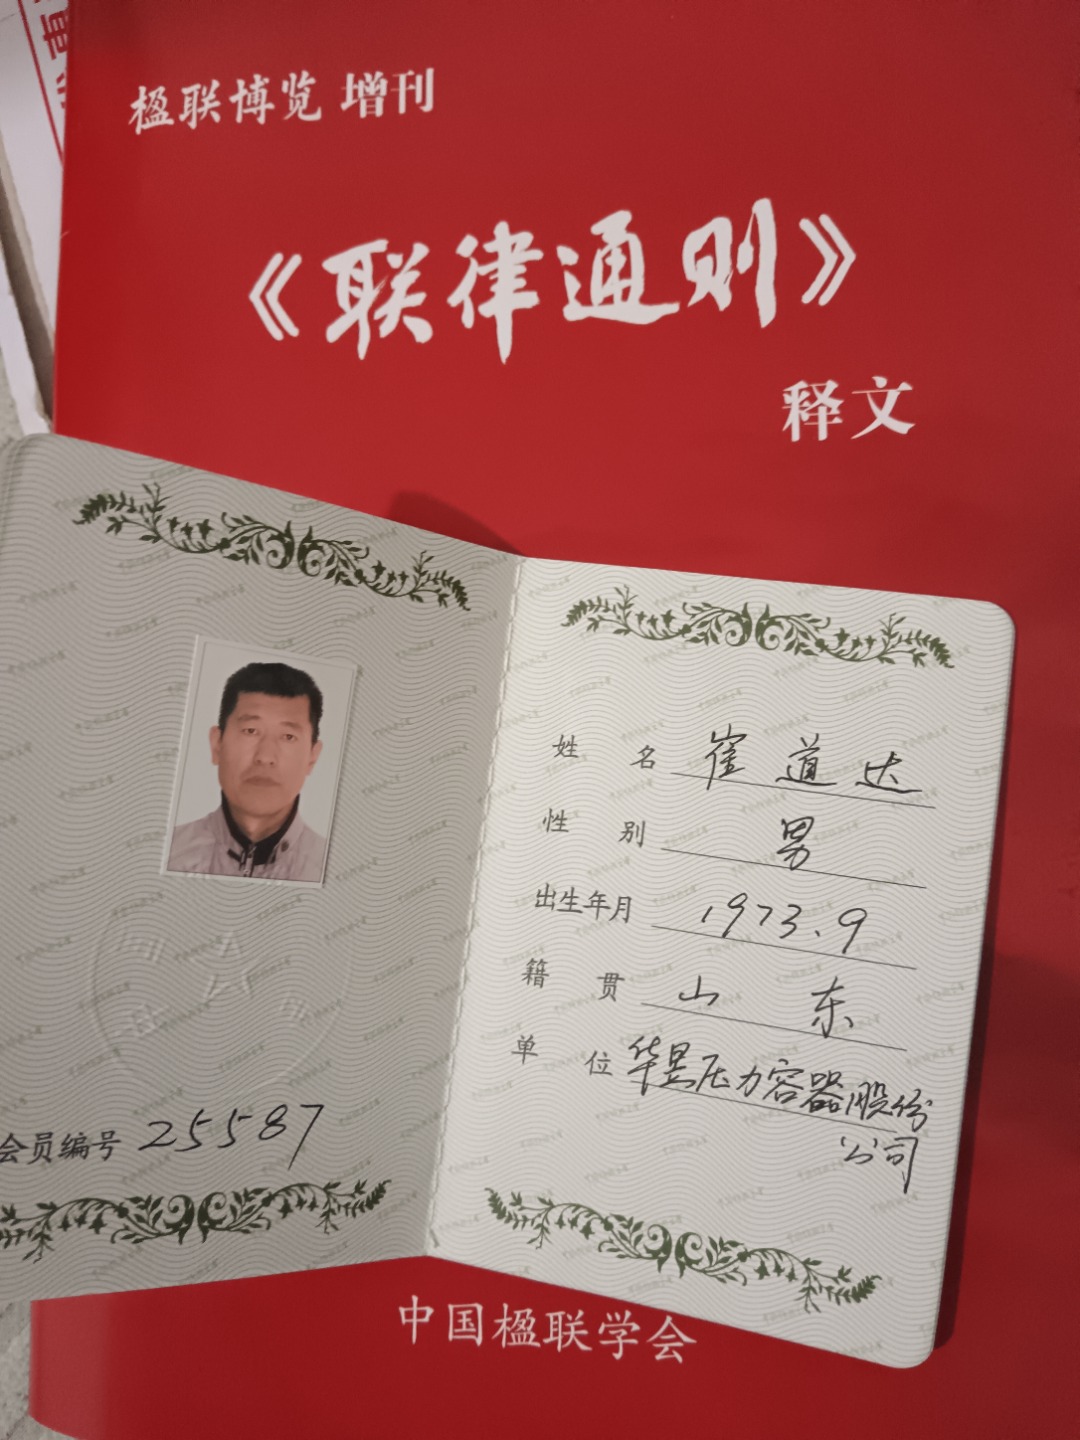 楹联博览 增刊
《联律通则》
释文
姓名 崔道达
性别 男
出生年月 1973.9
籍贯 山东
单位 华昱压力容器股份
公司
会员编号 25587
中国楹联学会